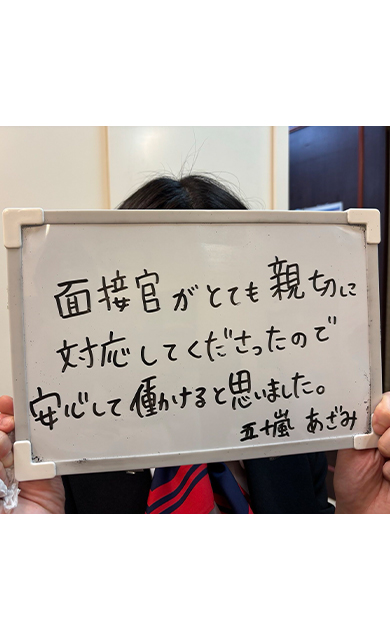 面接官がとても親切に
対応してくださったので
安心して働けると思いました。
五十嵐 あざみ